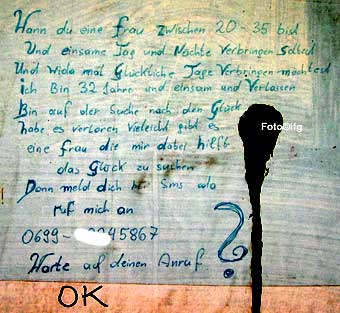 Wann du eine frau zwischen 20-35 bist
Und einsame Tag und Nächte Verbringen
Und wida mal Glückliche Tage Verbringen möchtest
ich Bin 32 Jahre und einsam und Verlassen
Bin auf der Suche nach den Glück
habe es verloren Vieleicht gibt es
eine frau die mir dabei hilft
das Glück zu suchen
Dann meld dich Sms oda
ruf mich an
0699- 45867
Warte auf deinen Anruf ?
OK
Foto©lfg